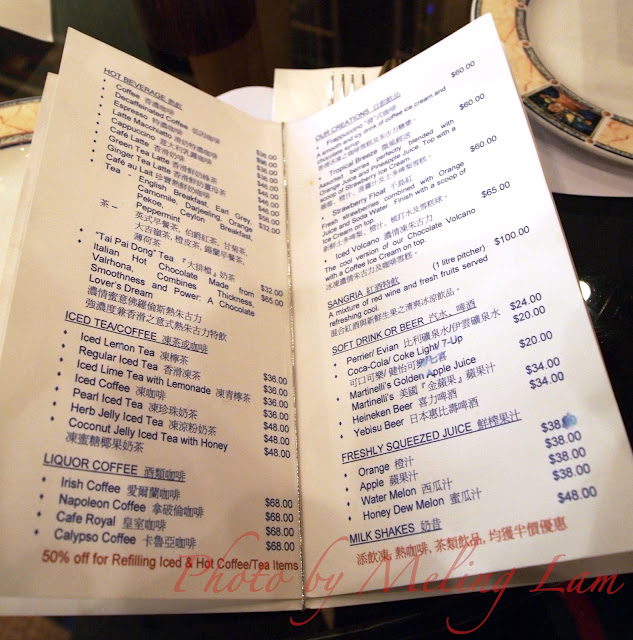 HOT BEVERAGE 熱飲
Coffee 香濃咖啡
Decaffeinated Coffee 低因咖啡 $36.00
Espresso 特濃咖啡
Latte Macchiato 奶特濃咖啡
Cappuccino 意大利泡沫咖啡
Café Latte 香濃奶啡 $46.00
Green Tea Latte 香滑鮮奶綠茶 $46.00
Ginger Tea Latte 香滑鮮奶薑母茶 $46.00
Café au Lait 珍寶熱鮮奶咖啡 $46.00
Tea - English Breakfast, Earl Grey,
Camomile, Darjeeling, Orange
Pekoe, Ceylon Breakfast,
Peppermint
茶 – 英式早餐茶, 伯爵紅茶, 甘菊茶,
大吉嶺茶, 橙皮茶, 錫蘭早餐茶,
薄荷茶
"Tai Pai Dong" Tea 『大排檔』奶茶 $32.00
Italian Hot Chocolate Made from $65.00
Valrhona, Combines Thickness,
Smoothness and Power: A Chocolate
Lover's Dream
濃情蜜意佛羅倫斯熱朱古力
強濃度兼香滑之意式熱朱古力特飲
ICED TEA/COFFEE 凍茶或咖啡
Iced Lemon Tea 凍檸茶
Regular Iced Tea 香滑凍茶 $36.00
Iced Lime Tea with Lemonade 凍青檸茶 $36.00
Iced Coffee 凍咖啡 $36.00
Pearl Iced Tea 凍珍珠奶茶 $36.00
Herb Jelly Iced Tea 凍涼粉奶茶 $48.00
Coconut Jelly Iced Tea with Honey $48.00
凍蜜糖椰果奶茶
LIQUOR COFFEE 酒類咖啡
Irish Coffee 愛爾蘭咖啡 $68.00
Napoleon Coffee 拿破倫咖啡 $68.00
Cafe Royal 皇室咖啡 $68.00
Calypso Coffee 卡魯亞咖啡 $68.00
50% off for Refilling Iced & Hot Coffee/Tea Items
OUR CREATIONS 自創飲品
Frappuccino "凍"式咖啡 $60.00
A smooth and icy drink of coffee ice cream and
chocolate syrup
Tropical Breeze 微風輕送 $60.00
Fresh berries perfectly blended with
Orange Juice and Pineapple Juice. Top with a
scoop of Strawberry Ice Cream.
Strawberry Float 千島紅 $60.00
Fresh strawberries combined with Orange
Juice and Soda Water. Finish with a scoop of
Ice Cream on top.
Iced Volcano 濃情凍朱古力 $65.00
The cool version of our Chocolate Volcano
with a Coffee Ice Cream on top.
冰凍濃情朱古力及咖啡雪糕。
SANGRIA 紅酒特飲 (1 litre pitcher) $100.00
A mixture of red wine and fresh fruits served
refreshing cool.
混合紅酒與新鮮生果之清爽冰涼飲品。
SOFT DRINK OR BEER 汽水, 啤酒
Perrier/ Evian 比利礦泉水/伊雲礦泉水 $24.00
Coca-Cola/ Coke Light/ 7-Up $20.00
可口可樂/ 健怡可樂/七喜
Martinelli's Golden Apple Juice $20.00
Martinelli's 美國『金蘋果』蘋果汁
Heineken Beer 喜力啤酒 $34.00
Yebisu Beer 日本惠比壽啤酒 $34.00
FRESHLY SQUEEZED JUICE 鮮榨果汁
Orange 橙汁 $38
Apple 蘋果汁 $38.00
Water Melon 西瓜汁 $38.00
Honey Dew Melon 蜜瓜汁 $38.00
MILK SHAKES 奶昔 $48.00
添飲凍, 熱咖啡, 茶類飲品, 均獲半價優惠
Photo by Meling Lam